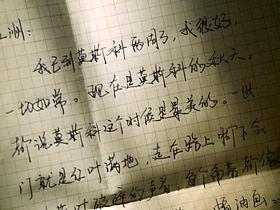 洲:
我已到莫斯科两周了,我很好,
一切如常。现在是莫斯科的秋天,
听说莫斯科这个时候是最美的。一出
门就是红叶满地,走在路上脚下会
叶破碎的声音,每个角落都像
油画